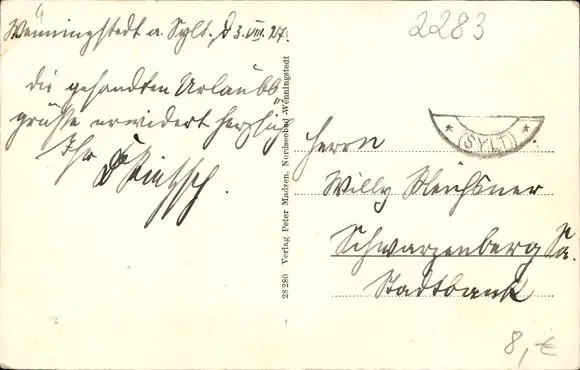 Wenningstedt a. Sylt, d 3. VIII. 27.
die gesandten Urlaubs
grüße erwidert herzlich
Ihr
2283
(SYLT)
Herrn
Willy Meichsner
Schwarzenberg Sa.
Stadtbank
28 280 Verlag Peter Madzen, Nordseebad Wenningstedt
8,-€